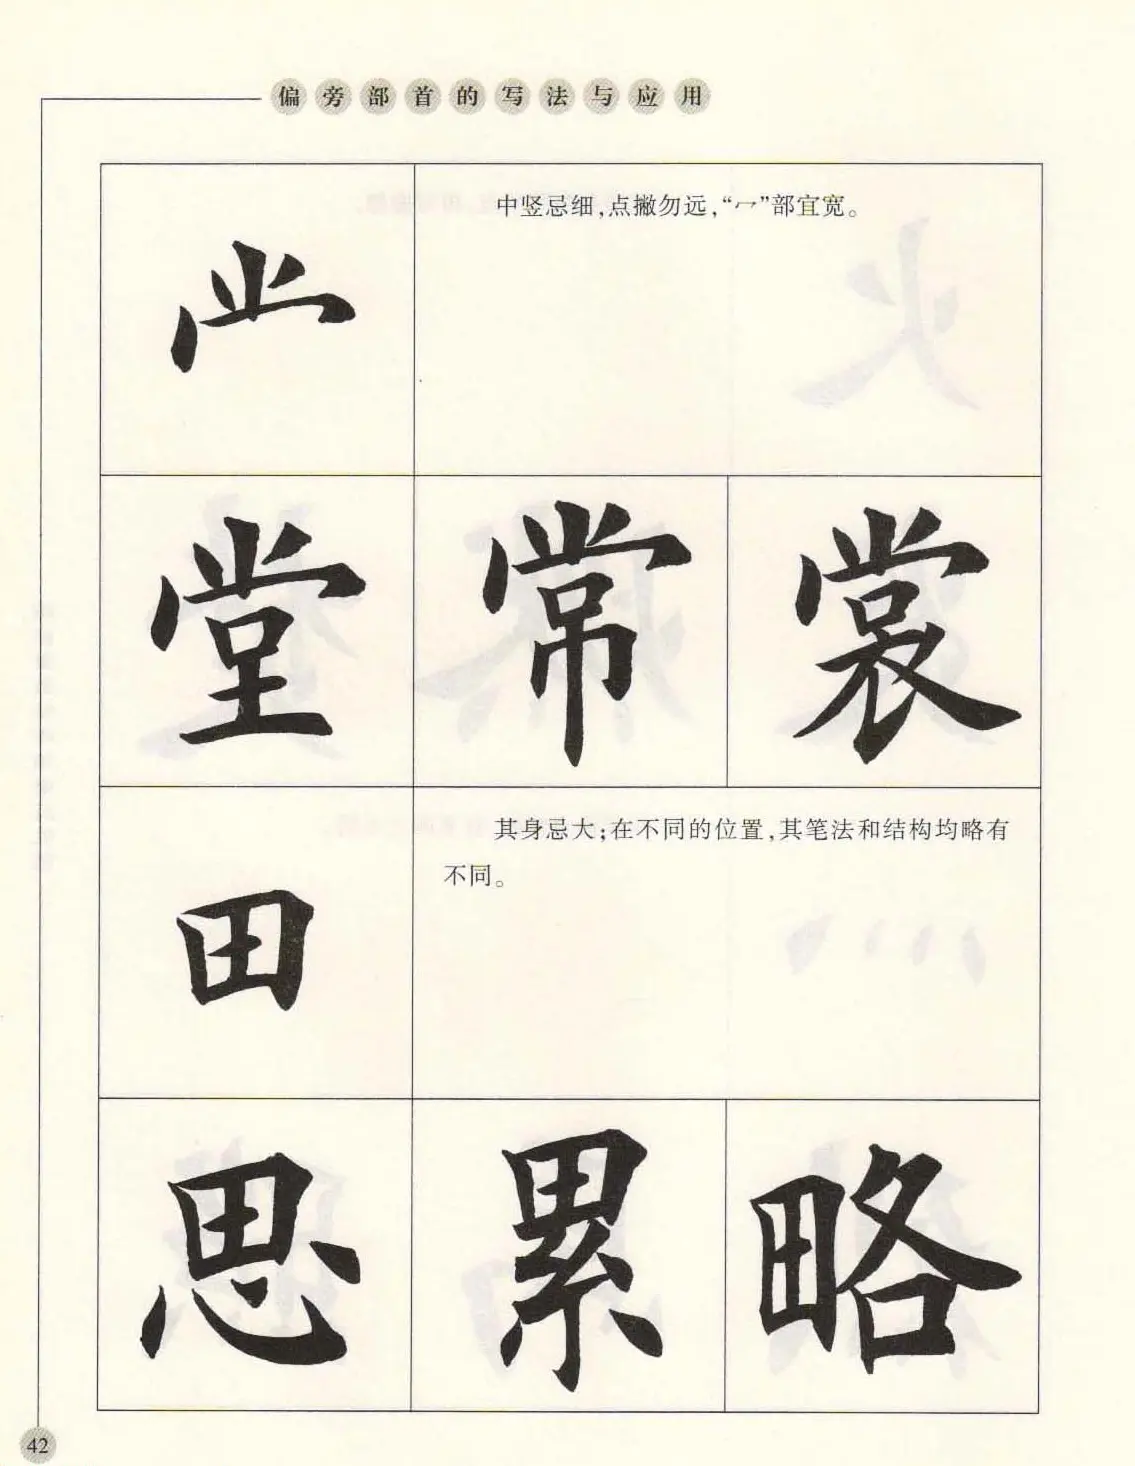 偏旁部首的写法与应用
中竖忌细,点撇勿远,“冖”部宜宽。
堂 常 裳
其身忌大;在不同的位置,其笔法和结构均略有
不同。
田
思 累 略
42